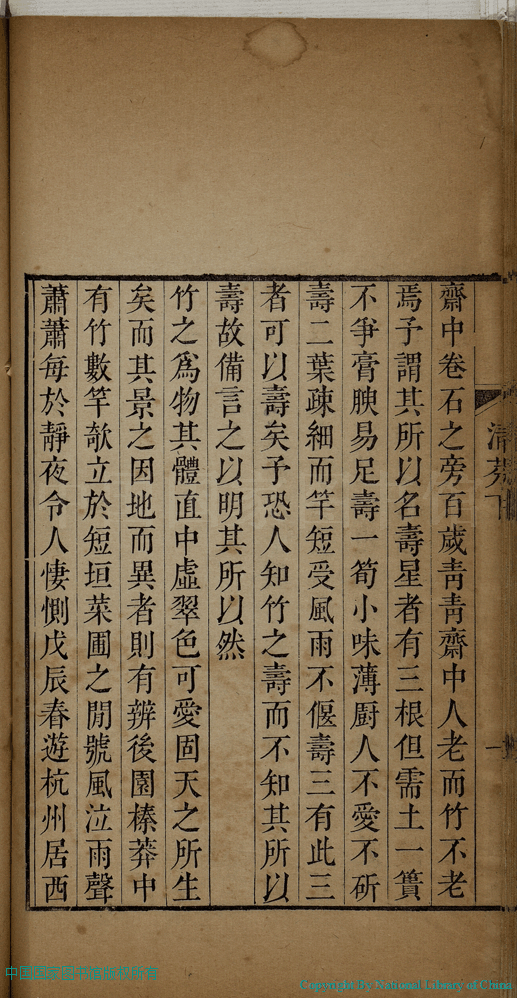 齋中卷石之旁百歲靑靑齋中人老而竹不老
焉予謂其所以名壽星者有三根但需土一簣
不爭膏腴易足壽一筍小味薄厨人不愛不斫
壽二葉疎細而竿短受風雨不偃壽三有此三
者可以壽矣予恐人知竹之壽而不知其所以
壽故備言之以明其所以然
竹之爲物其體直中虛翠色可愛固天之所生
矣而其景之因地而異者則有辨後園榛莽中
有竹數竿欹立於短垣菜圃之閒號風泣雨聲
蕭蕭每於靜夜令人悽惻戊辰春遊杭州居西
Copyright By National Library of China